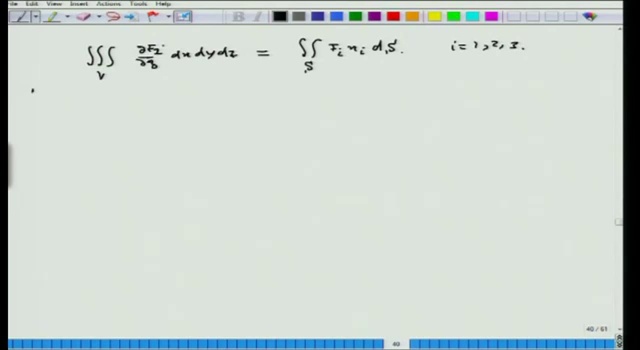 File Edit View Insert Actions Tools Help
∭_V ∂F_i/∂x_i dx dy dz = ∬_S F_i n_i dS. i = 1, 2, 3.
40 / 61
40